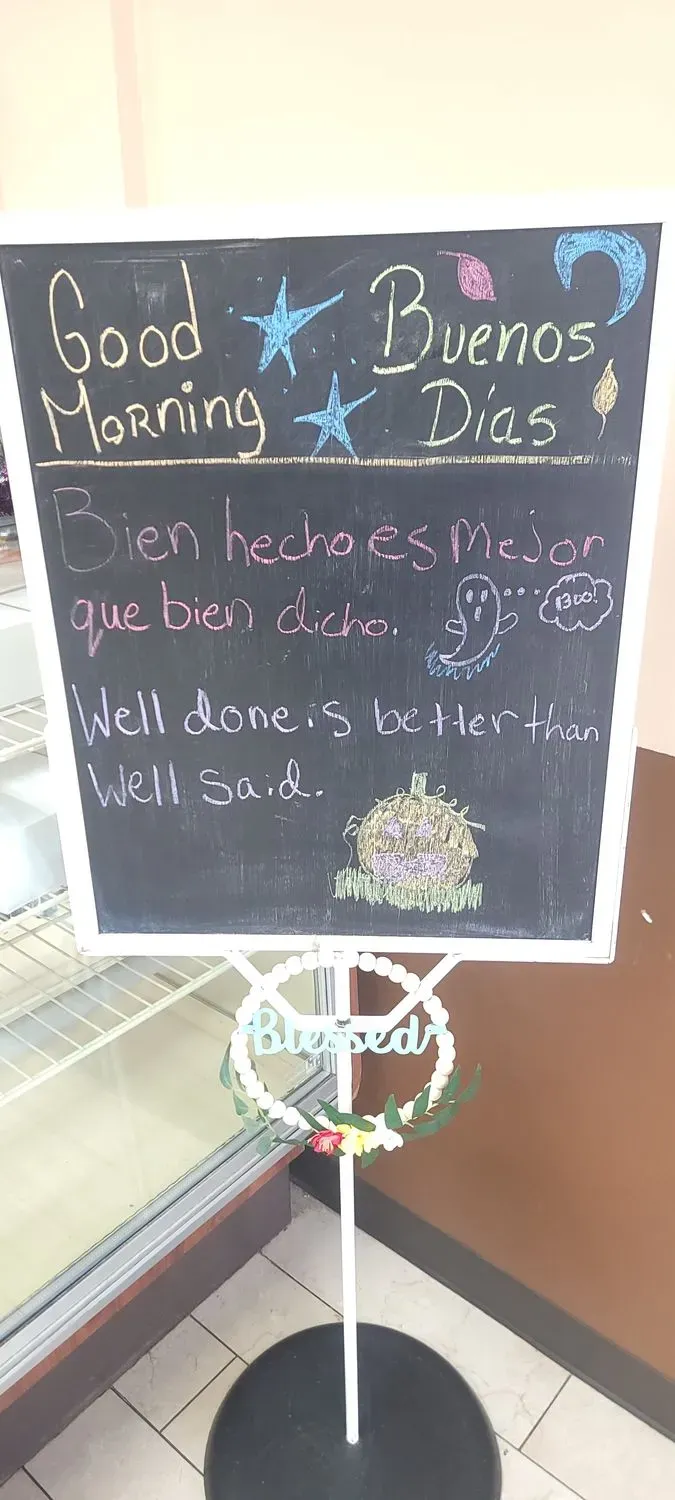 Good
Morning
Buenos
Días
Bien hecho es Mejor
que bien dicho.
Boo!
Well done is better than
Well Said.
Blessed